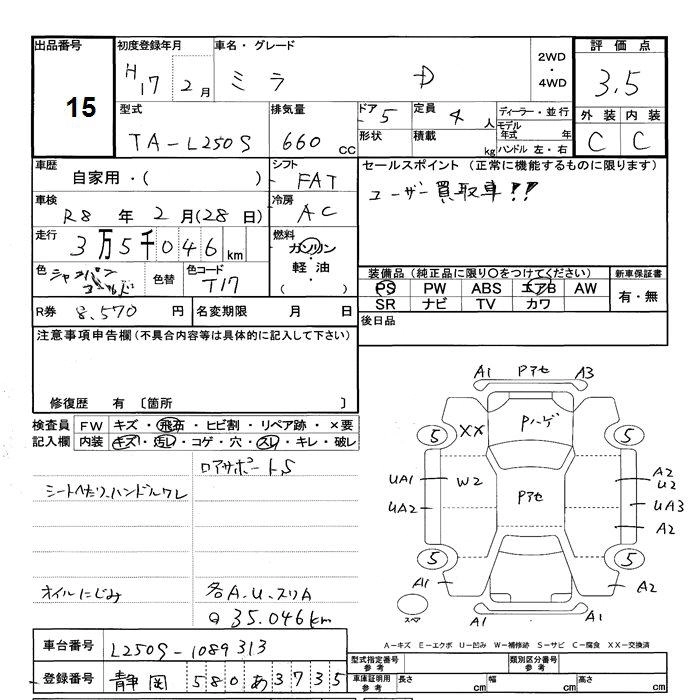 出品番号 初度登録年月 車名・グレード 2WD・4WD 評価点
15 H17 2月 ミラ D 3.5
型式 排気量 ドア 5 定員 4人 ディーラー・並行 外装 内装
TA-L250S 660cc 形状 積載 kg モデル年式 年 C C
ハンドル 左・右
車歴 シフト セールスポイント(正常に機能するものに限ります)
自家用・( ) FAT ユーザー買取車!!
車検 R8年2月(28日) 冷房 AC
走行 3万5千046km 燃料 ガソリン・軽油・( )
色 シャンパンゴールド 色替 色コード T17 装備品(純正品に限り○をつけてください) 新車保証書
PS PW ABS エアB AW 有・無
SR ナビ TV カワ
R券 8,570円 名変期限 月 日 後日品
注意事項申告欄(不具合内容等は具体的に記入して下さい)
修復歴 有 〔箇所 〕
検査員 FW キズ・飛石・ヒビ割・リペア跡・×要
記入欄 内装 キズ・汚レ・コゲ・穴・スレ・キレ・破レ
ロアサポートS
シートへたり、ハンドルスレ
オイルにじみ 各A.U.スリA
Q 35.046km
A1 Pアセ A3
5 XX Pハゲ 5
UA1 W2 Pアセ A2 U2
UA2 UA3
A2
5 5
A1 A2
スペア A1 A1
A-キズ E-エクボ U-凹み W-補修跡 S-サビ C-腐食 XX-交換済
車台番号 L250S-1089313
型式指定番号 参考 類別区分番号 参考
登録番号 静岡 580 あ 3735
車庫証明用 参考 長さ cm 幅 cm 高さ cm